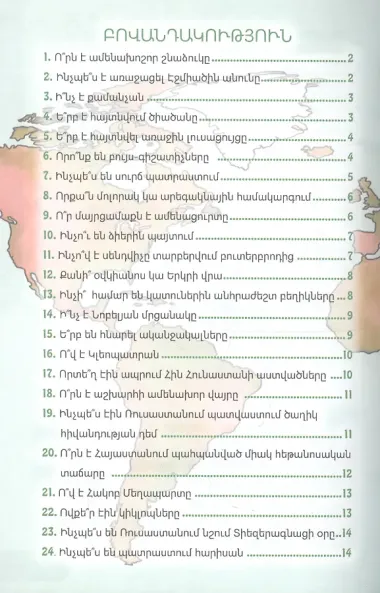 ԲՈՎԱՆԴԱԿՈՒԹՅՈՒՆ
1. Ո՞րն է ամենախոշոր շնաձուկը ........ 2
2. Ինչպե՞ս է առաջացել Էջմիածին անունը ........ 2
3. Ի՞նչ է քամանչան ........ 3
4. Ե՞րբ է հայտնվում ծիածանը ........ 3
5. Ե՞րբ է հայտնվել առաջին լուսացույցը ........ 4
6. Որո՞նք են բույս-գիշատիչները ........ 4
7. Ինչպե՞ս են սուրճ պատրաստում ........ 5
8. Որքա՞ն մոլորակ կա արեգակնային համակարգում ........ 6
9. Ո՞ր մայրցամաքն է ամենացուրտը ........ 6
10. Ինչո՞ւ են ձիերին պայտում ........ 7
11. Ինչո՞վ է սենդվիչը տարբերվում բուտերբրոդից ........ 7
12. Քանի՞ օվկիանոս կա Երկրի վրա ........ 8
13. Ինչի՞ համար են կատուներին անհրաժեշտ բեղիկները ... 8
14. Ի՞նչ է Նոբելյան մրցանակը ........ 9
15. Ե՞րբ են հնարել ականջակալները ........ 9
16. Ո՞վ է Կլեոպատրան ........ 10
17. Որտե՞ղ էին ապրում Հին Հունաստանի աստվածները .... 10
18. Ո՞րն է աշխարհի ամենախոր վայրը ........ 11
19. Ինչպե՞ս էին Ռուսաստանում պատվաստում ծաղիկ
հիվանդության դեմ ........ 11
20. Ո՞րն է Հայաստանում պահպանված միակ հեթանոսական
տաճարը ........ 12
21. Ո՞վ է Հակոբ Մեղապարտը ........ 13
22. Ովքե՞ր էին կիկլոպները ........ 13
23. Ինչպե՞ս են Ռուսաստանում նշում Տիեզերագնացի օրը .. 14
24. Ինչպե՞ս են պատրաստում հարիսան ........ 14